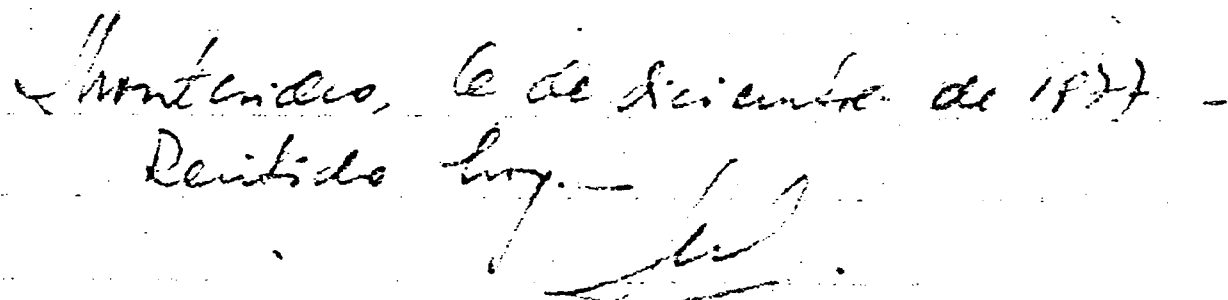 Montevideo, 6 de diciembre de 1977 -
Recibido hoy.-